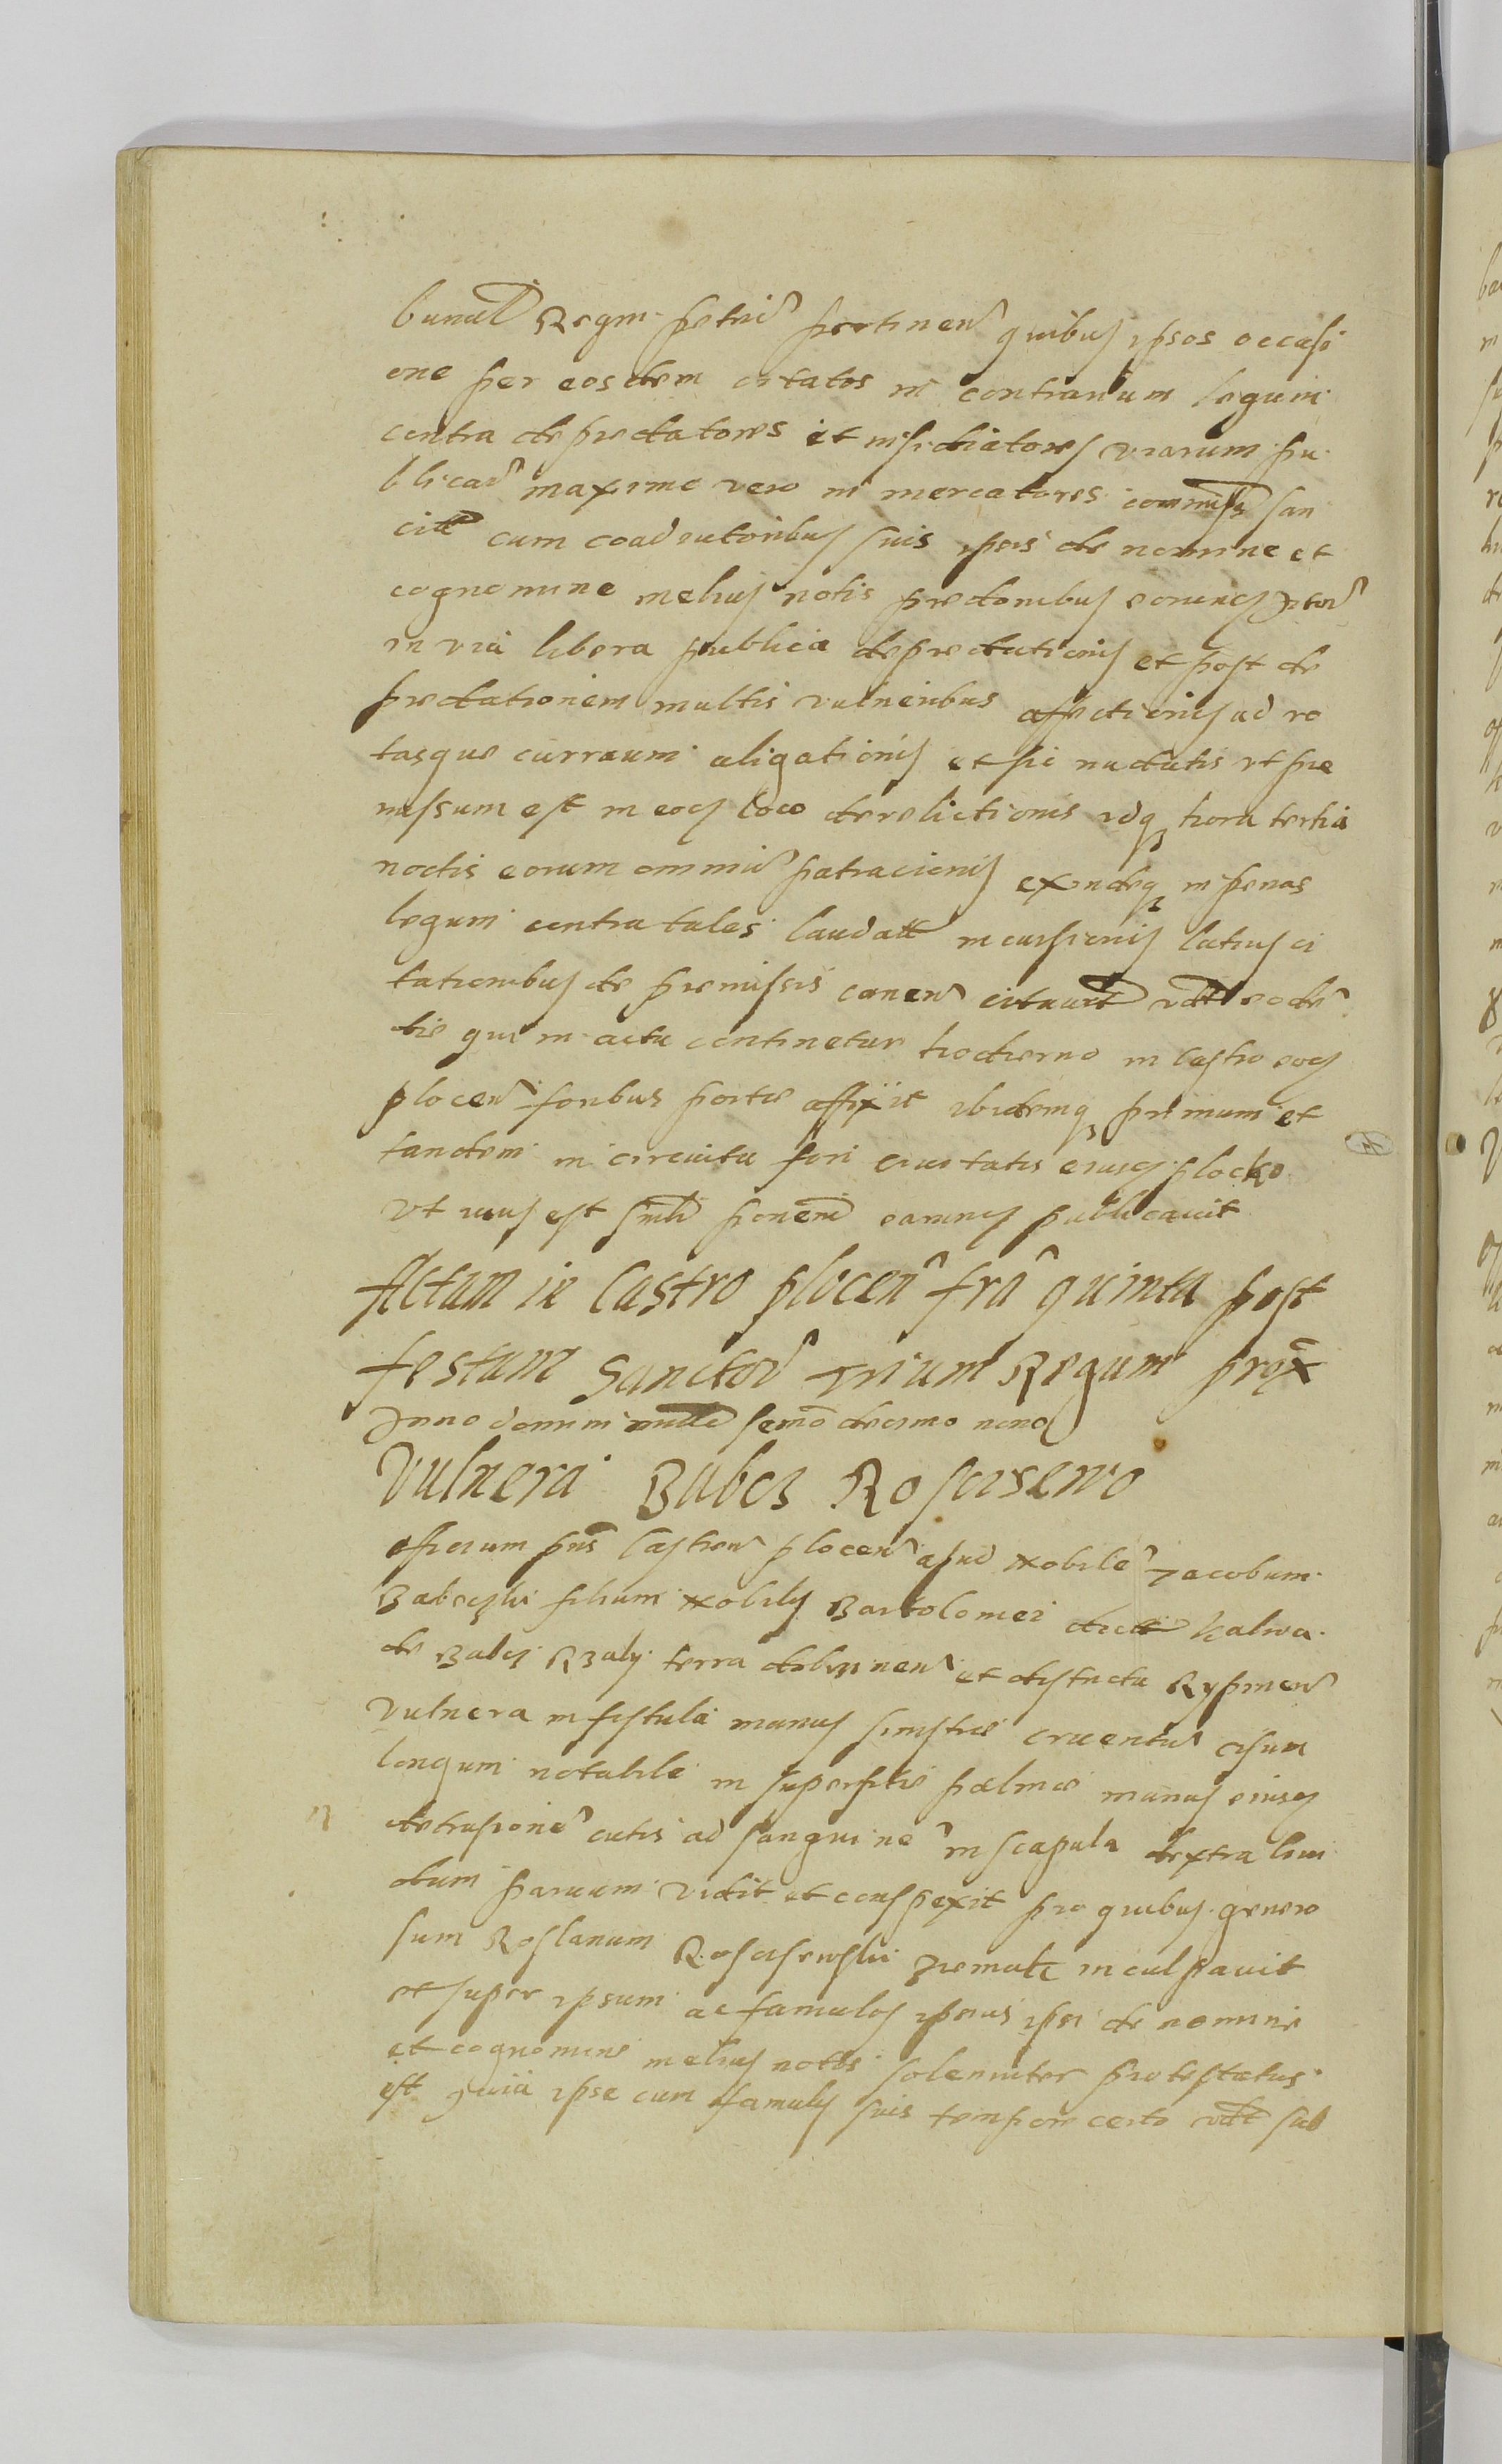 bunal Regni Petric pertinen quibus ipsos occasi
one per eosdem citatos in contrarium legum
contra depredatores et insidiatores viarum pu
blicar maxime vero in mercatores commiss san
citt cum coadiutoribus suis ipsis de nomine et
cognomine melius notis predonibus eorundem
in via libera publica depredationis et post de
predationem multis vulneribus affectionis ad ro
tasque curruum aligationis et sic nudatis ut pre
missum est in eodem loco derelictionis idq hora tertia
noctis eorum omniu patracionis exindeq in penas
legum contra tales laudatt incursionis latius ci
tationibus de premissis canen citavit vdt eode
die qui in actu continetur hodierno in Castro eodem
plocen foribus porte affixit ibidemq primum et
tandem in circuitu fori civitatis eiusdem plocko
Ut usus est earundem publicavit
Actum in Castro plocen fria quinta post
festum Sanctor Trium Regum prox
Anno domini mille sexmo decimo nono
Vulnera Babecz Rosciseno
officium pns Castren plocen apud Nobile Jacobum
Babeczki filium Nobilis Bartolomei dicti kalwa
de Babcz Rzaly terra dobrinen et districtu Rypinen
Vulnera in fistula manus sinistre cruentu cisum
longum notabile in superficie palme manus eiusdem
detrusione cutis ad sanguine in scapula dextra livi
dum parvum vidit et conspexit pro quibus genero
sum Roslanum Rosciseuski inculpavit
et super ipsum ac famulos ipsius ipsi de nomine
et cognomine melius notos solenniter protestatus
est quia ipse cum famulis suis tempore certo vdt sub